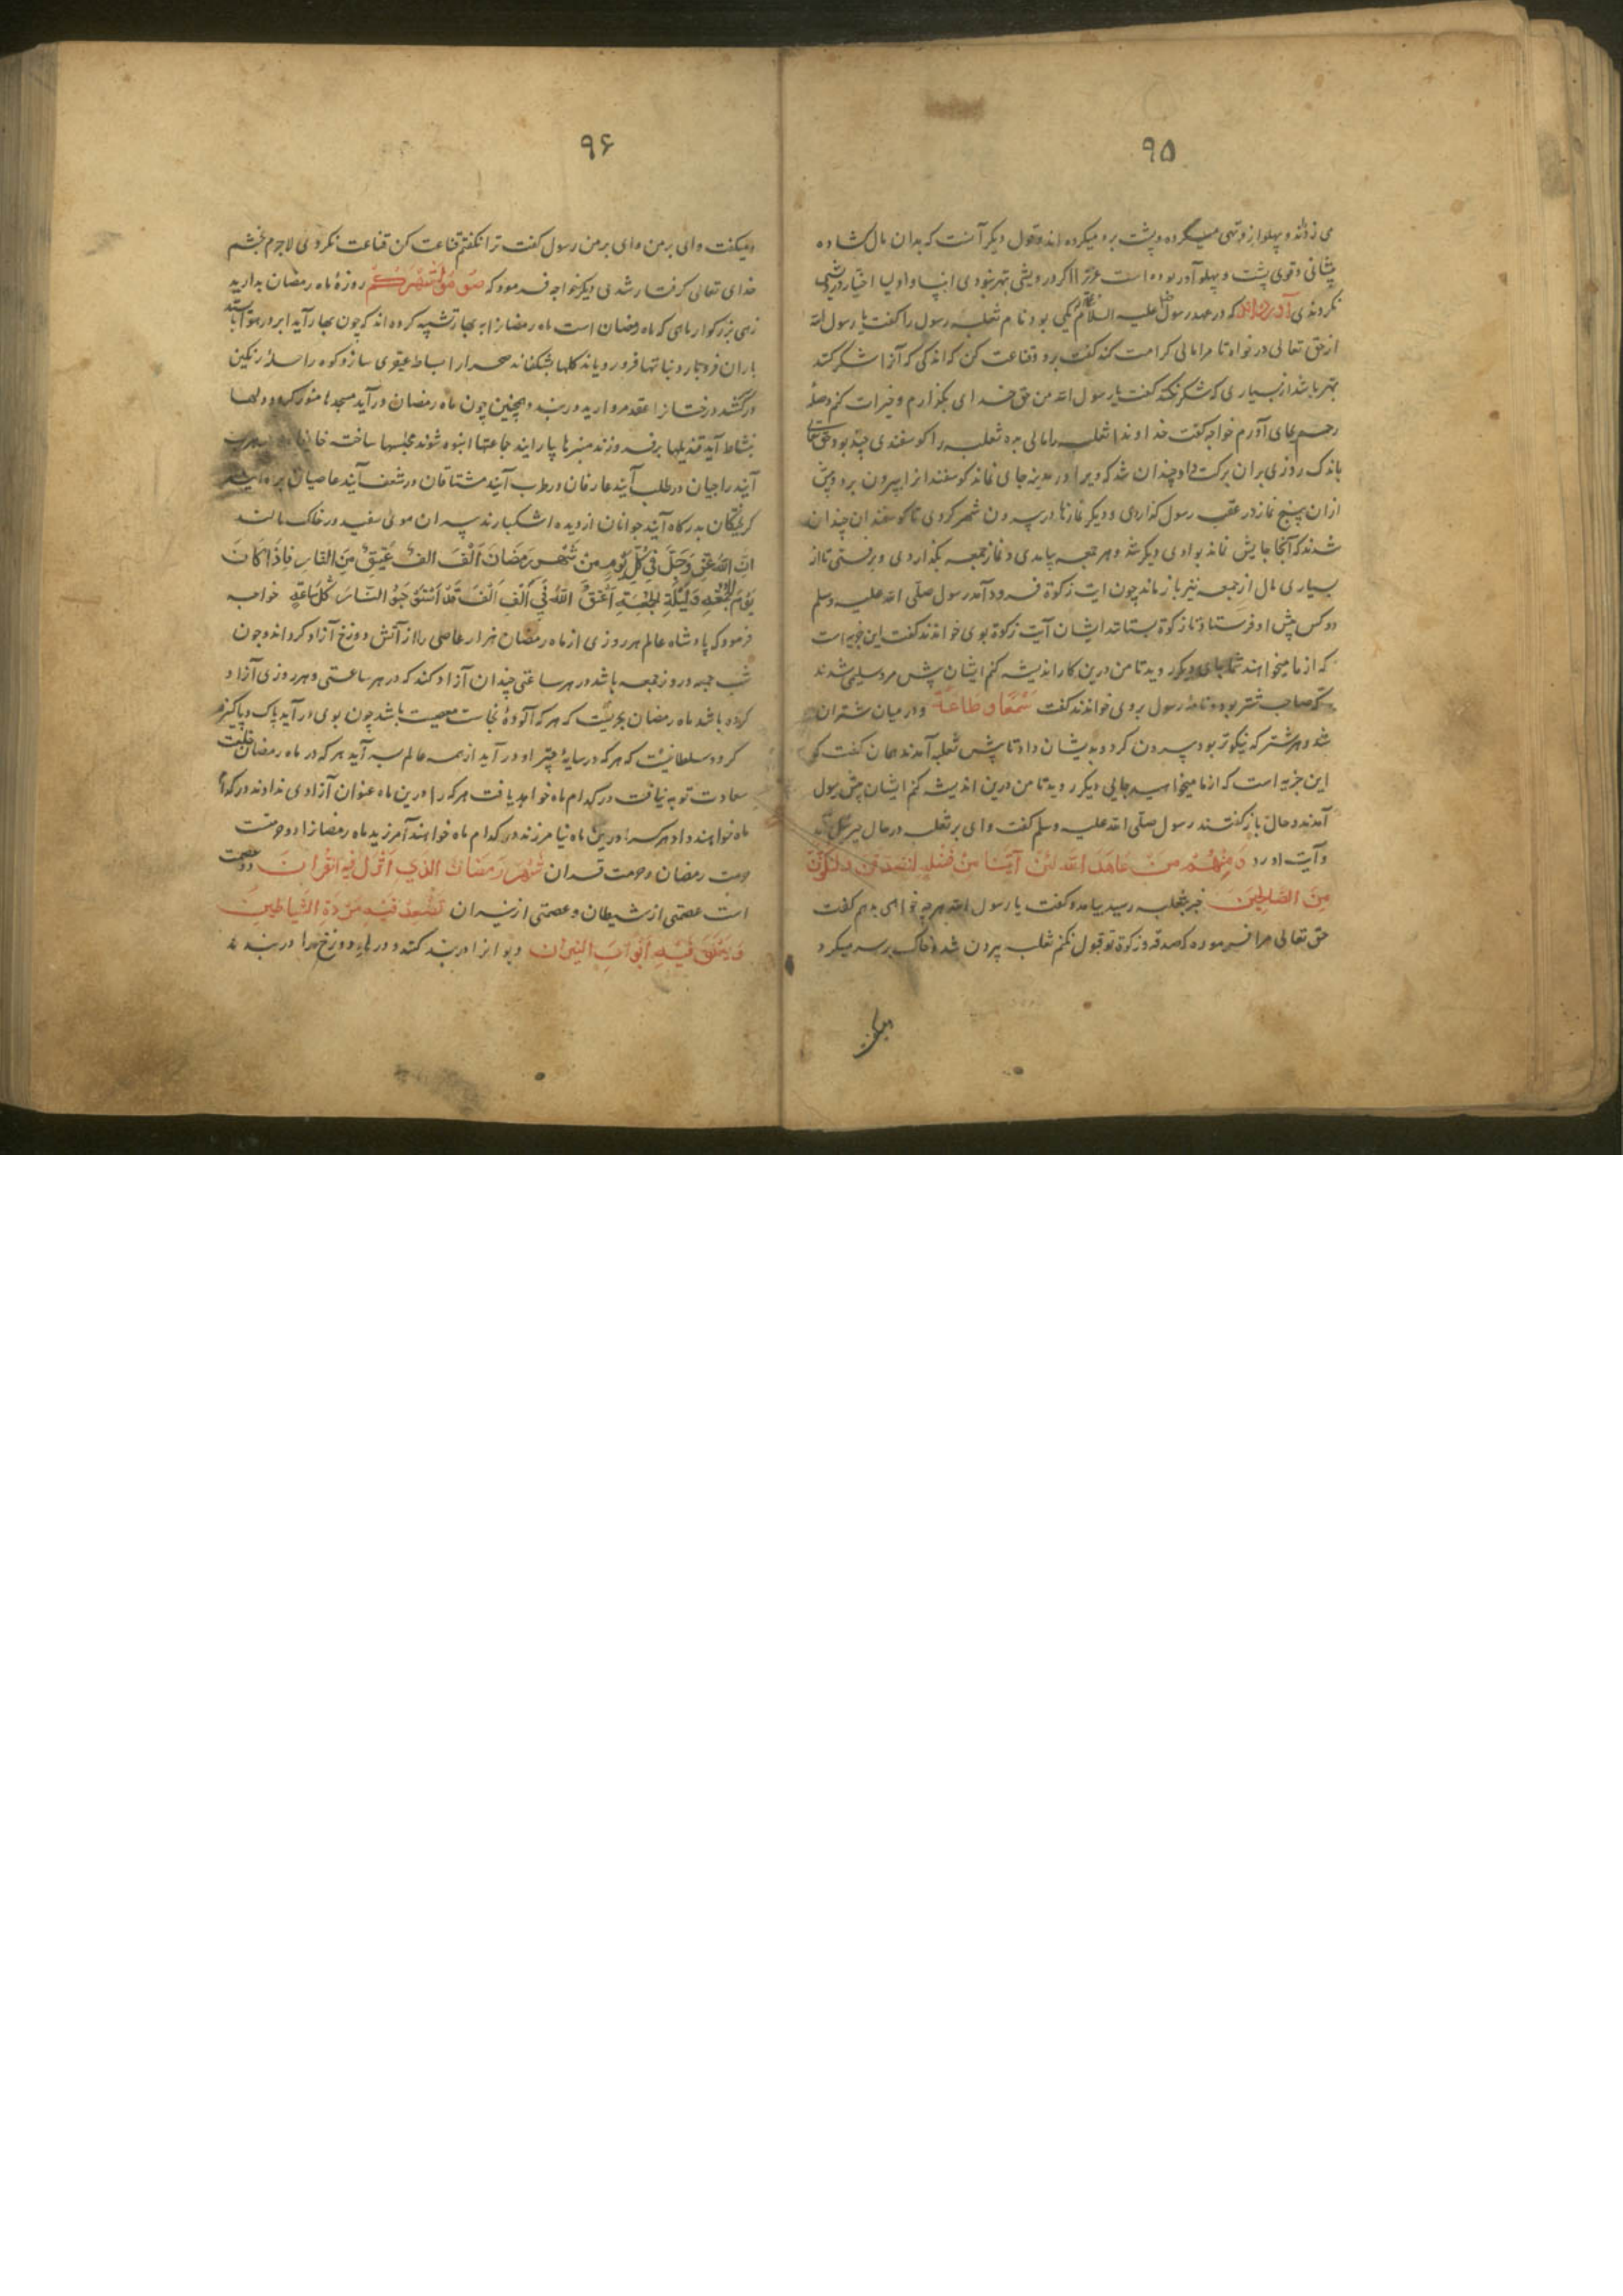 ۹۵
می زدند و پهلو از و تهی میکرده و پشت برو میکرده اند و قول دیگر آنست که بدان مال کشاده
پیشانی و قوی پشت و پهلو آور بوده است عزیزا اکر درویشی بهتر نبودی انبیا و اولیا اختیار درویشی
نکردندی آورده‌اند که در عهد رسول علیه السلام یکی بود نام ثعلبه رسول را کفت یا رسول الله
از حق تعالی درخواه تا مرا مالی کرامت کند کفت برو قناعت کن که اندکی که آنرا شکر کنند
بهتر باشد از بسیاری که شکر نکنند کفت یا رسول الله من حق خدای بگذارم و خیرات کنم و صلۀ
رحم بجای آورم خواجه کفت خداوندا ثعلبه را مالی بده ثعلبه را کوسفندی چند بود حق تعالی
باندک روزی بران برکت داد چندان شد که ویرا در مدینه جای نماند کوسفندانرا بیرون برد و پیش
ازان پنج نماز در عقب رسول کذاردی و دیگر نمازها در بیرون شهر کردی تا کوسفندان چندان
شدند که آنجا جایش نماند بوادی دیگر شد و هر جمعه بیامدی و نماز جمعه بگذاردی و برفتی تا از
بسیاری مال از جمعه نیز باز ماند چون ایت زکوة فرود آمد رسول صلّی الله علیه وسلم
دو کس پیش او فرستاد تا زکوة بستانند ایشان آیت زکوة بوی خواندند کفت این جزیه است
که از ما میخواهند شما بجای دیگر روید تا من درین کار اندیشه کنم ایشان پیش مرد سلیمی شدند
که صاحب شتر بود و نامۀ رسول بروی خواندند کفت سَمْعًا وَطَاعَةً و در میان شتران
شد و هر شتر که نیکوتر بود بیرون کرد و بدیشان داد تا پیش ثعلبه آمدند همان کفت که
این جزیه است که از ما میخواهید بجایی دیگر روید تا من درین اندیشه کنم ایشان پیش رسول
آمدند و حال باز کفتند رسول صلّی الله علیه وسلم کفت وای بر ثعلبه در حال جبرئیل آمد
و آیت اورد وَمِنْهُمْ مَنْ عَاهَدَ اللهَ لَئِنْ آتَينَا مِنْ فَضْلِهِ لَنَصَّدَّقَنَّ وَلَنَكُونَنَّ
مِنَ الصَّالِحِينَ خبر بثعلبه رسید بیامد و کفت یا رسول الله هر چه خواهی بدهم کفت
حق تعالی مرا فرموده که صدقه و زکوة تو قبول نکنم ثعلبه بیرون شد و خاک برسر میکرد
ومیکفت
۹۶
ومیکفت وای برمن وای برمن رسول کفت ترا نکفتم قناعت کن قناعت نکردی لاجرم بخشم
خدای تعالی کرفتار شدی دیکر خواجه فرمود که صُومُوا شَهْرَكُمْ روزۀ ماه رمضان بدارید
زهی بزرکوار ماهی که ماه رمضان است ماه رمضانرا به بهار تشبیه کرده اند که چون بهار آید ابر در هوا بایستد
باران فرو بارد نباتها فرو رویاند کلها بشکفاند صحرا را بساط عبقری سازد کوه را حلۀ رنکین
در کشد درختانرا عقد مروارید در بندد و همچنین چون ماه رمضان درآید مسجدها منور کردد و دلها
بنشاط آید قندیلها برفروزند منبرها بیارایند جماعتها انبوه شوند مجلسها ساخته
آیند راجیان در طلب آیند عارفان در طرب آیند مشتاقان در شغف آیند عاصیان
کریختگان بدرکاه آیند جوانان از دیده اشک بارند پیران موئی سفید در خاک مالند
اِنَّ اللهَ عَزَّ وَجَلَّ فِي كُلِّ يَوْمٍ مِنْ شَهْرِ رَمَضَانَ اَلْفَ الفِ عَتِيقٍ مِنَ النَّارِ فَاِذَا كَانَ
يَوْمُ الجُمُعَةِ وَلَيْلَةِ الجُمْعَةِ اَعْتَقَ اللهُ فِي اَلْفِ اَلْفَ قَدْ اسْتَوْجَبُوا النَّارَ كُلَّ سَاعَةٍ خواجه
فرمود که پادشاه عالم هر روزی از ماه رمضان هزار هزار عاصی را از آتش دوزخ آزاد کرداند و چون
شب جمعه و روز جمعه باشد در هر ساعتی چندان آزاد کند که در هر ساعتی و هر روزی آزاد
کرده باشد ماه رمضان بحریست که هر که آلودۀ نجاست معصیت باشد چون بوی درآید پاک و پاکیزه
کردد سلطانیست که هر که در سایۀ چتر او درآید از همه عالم سرآید هر که در ماه رمضان خلعت
سعادت توبه نیافت در کدام ماه خواهد یافت هر که را درین ماه عنوان آزادی ندادند در کدام
ماه خواهند داد هر که را درین ماه نیامرزند در کدام ماه خواهند آمرزید ماه رمضانرا دو حرمت
حرمت رمضان و حرمت قرآن شَهْرُ رَمَضَانَ الَّذِي اُنْزِلَ فِيهِ الْقُرْآنَ و دو عصمت
است عصمتی از شیطان و عصمتی از نیران تُصَفَّدُ فِيْهِ مَرَدَةُ الشَّيَاطِينِ
وَيُغْلَقُ فِيْهِ اَبْوَابَ النِّيْرَانِ دیوانرا دربند کنند و درهای دوزخ را دربندند